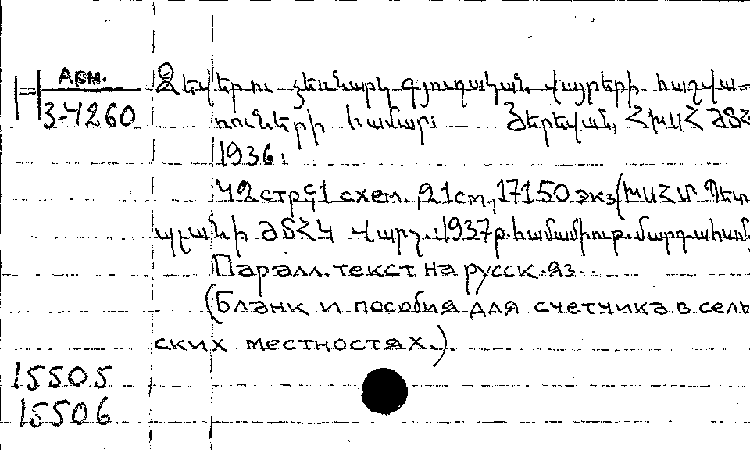 Арм.
3-4260
Ձևեր ու ձեռնարկ գյուղական վայրերի հաշվա-
րուների համար: Յերեվան, ՀԽՍՀ
1936:
42 стр 1 схем. 21 см, 17150 экз (ԽՍՀՄ Պետ
պլանի ԺՏՀՎ վարչ. 1937 թ. համամիութ. մարդահամ
Паралл. текст на русск. яз.
(Бланк и пособия для счетчика в сель
ских местностях.)
15505
15506